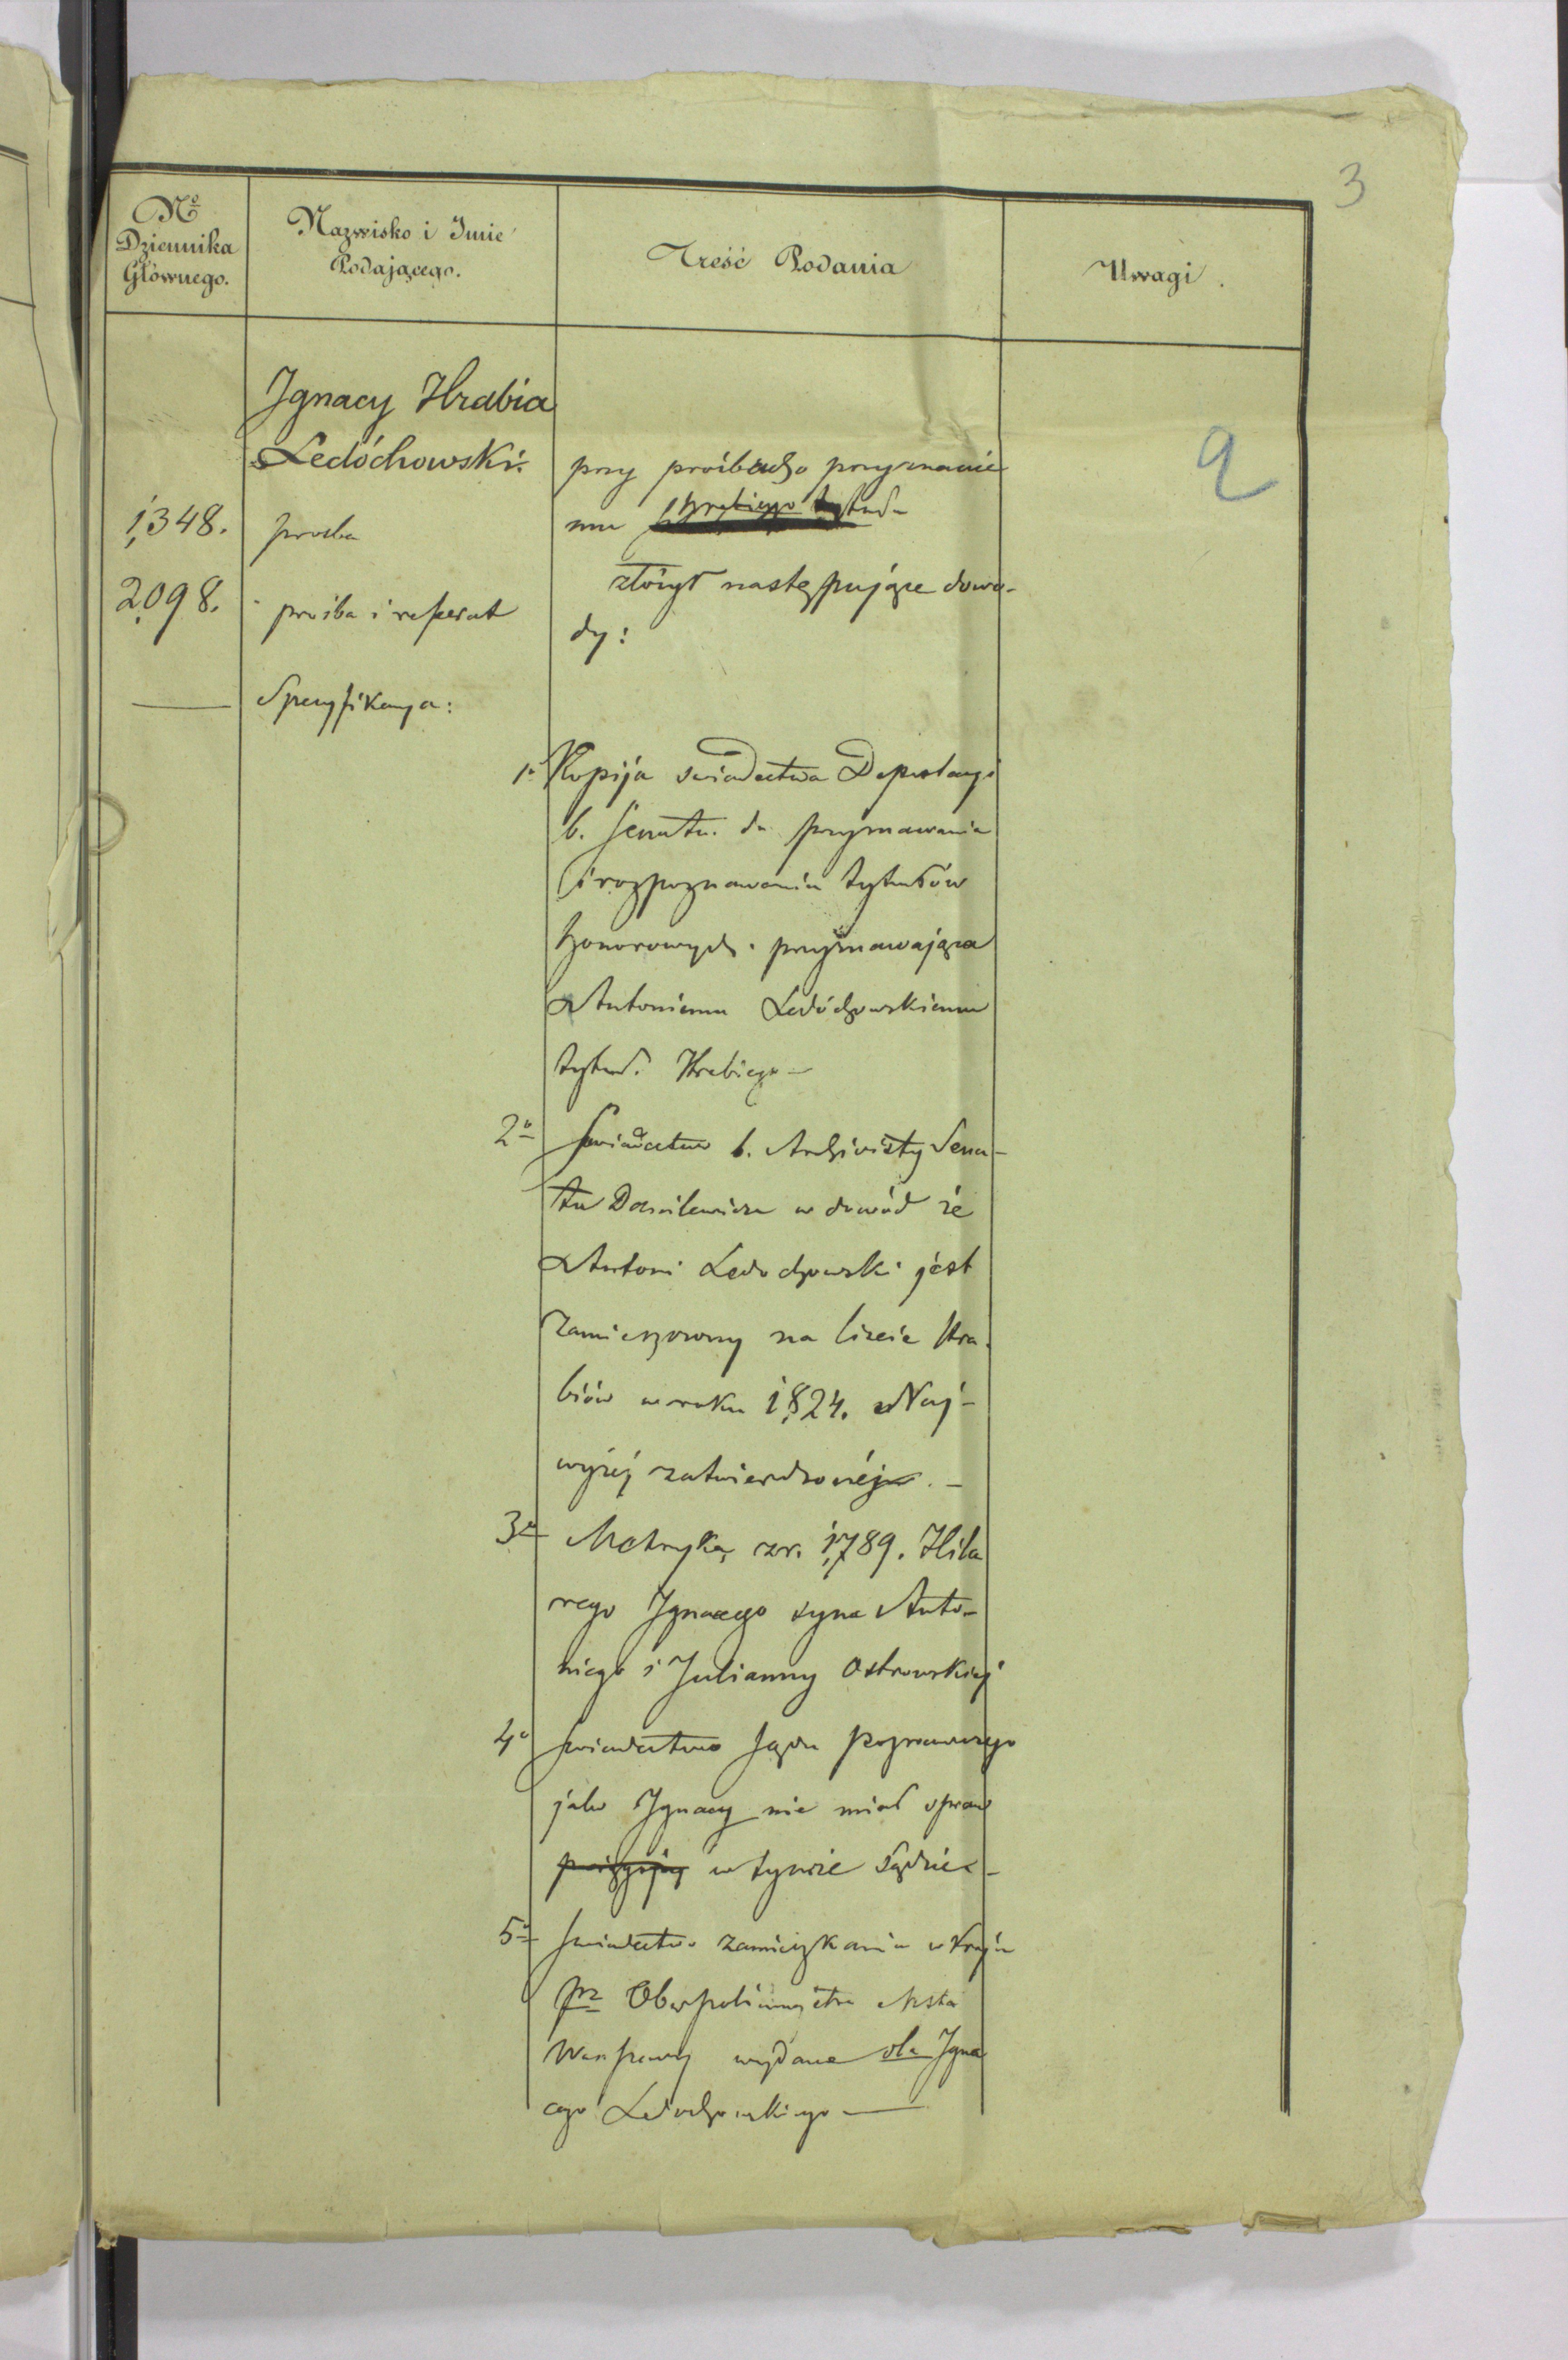 3
Nº
Dziennika
Głównego.
Nazwisko i Imie
Podającego.
Treść Podania
Uwagi.
Ignacy Hrabia
Ledóchowski.
9
przy prośbach o przyznanie
1,348.
prosba
mu Hrabiego tytuł-
złożył następujące dowo-
2,098.
prośba i referat
dy:
Specyfikacya:
1º Kopija świadectwa Deputacyi
b. Senatu. do przyznawania
i rozpoznawania tytułów
honorowych. przyznawająca
Antoniemu Ledóchowskiemu
tytuł. Hrabiego-
2º Swiadectwo b. Archiwisty Sena-
tu Danilewicza w dowód że
Antoni Ledochowski jest
zamieszczony na liście Hra-
biów w roku 1,824. Naj-
wyżéj zatwierdzonéj. -
3º Metrykę z r. 1,789. Hila
rego Ignacego syna Anto-
niego i Julianny Ostrowskiéj
4º swiadectwo Sądu Poprawczego
jako Ignacy nie miał spraw
w tymże Sądzie -
5º swiadectwo zamieszkania w Kraju
prz Oberpolicmajstra Msta
Warszawy wydane dla Igna
cego Ledochowskiego —